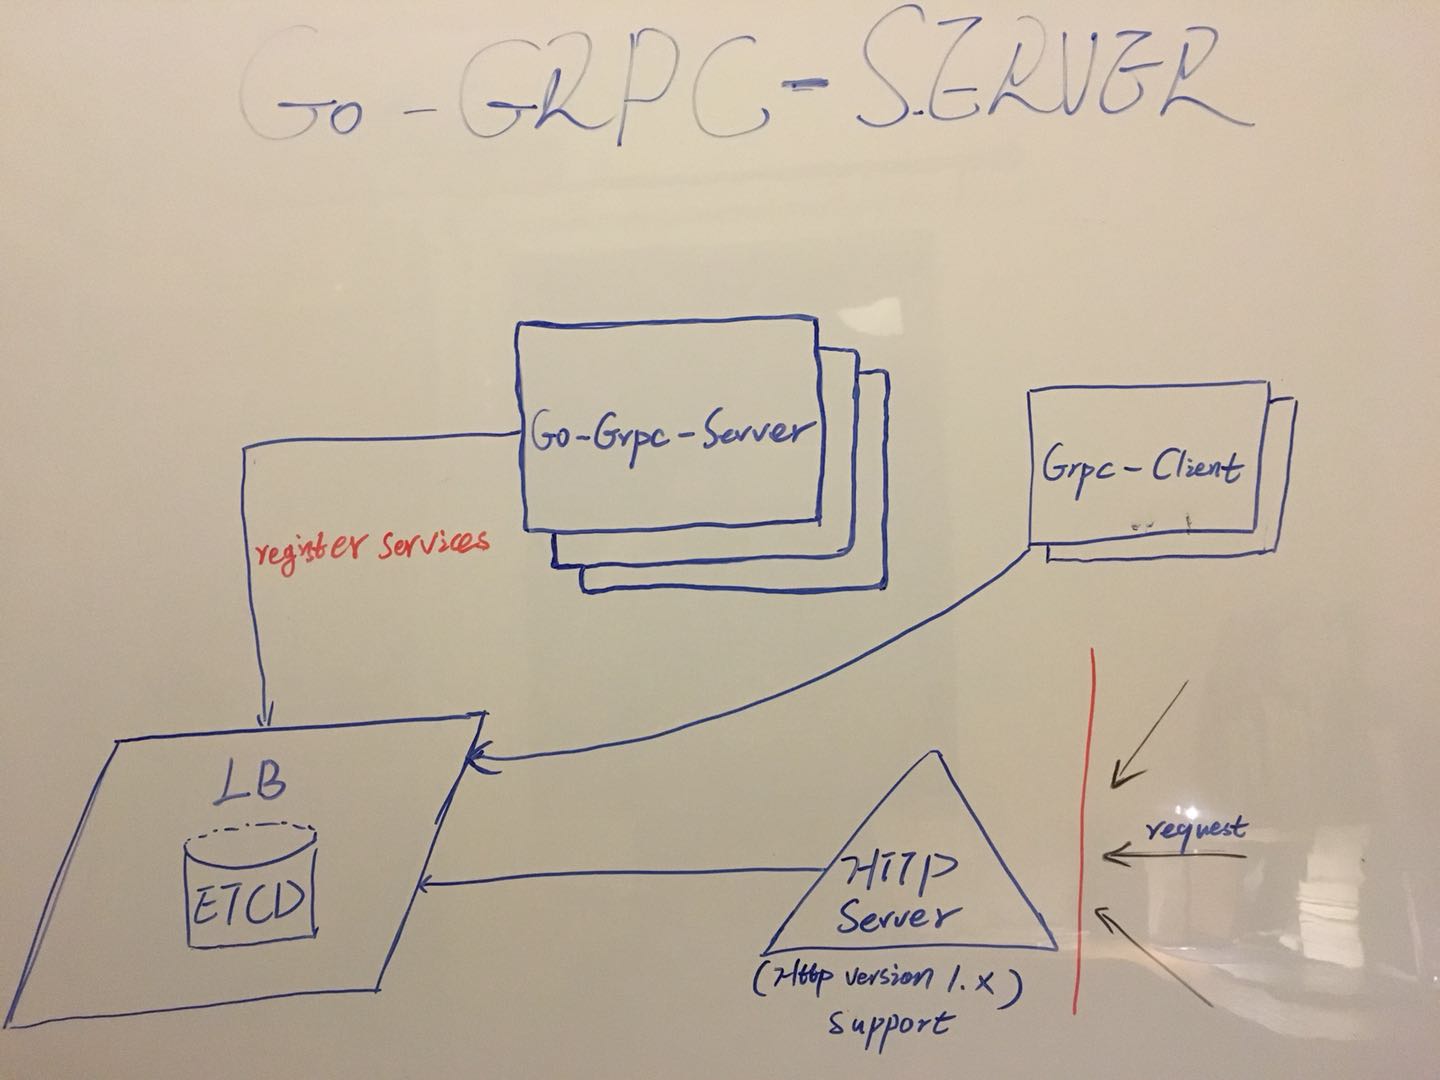 Go-GRPC-SERVER
Go-Grpc-Server
Grpc-Client
register services
LB
ETCD
request
HTTP
Server
(Http version 1.x)
support